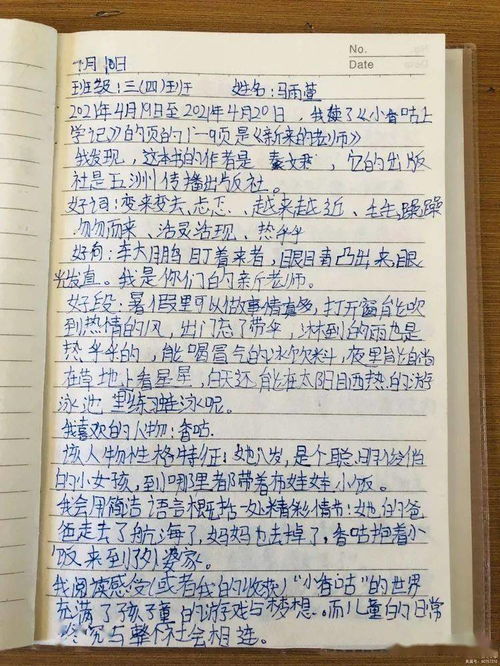 No.
Date
月 日
班级：三(四)班 姓名：马雨萱
2021年4月19日至2021年4月20日，我读了《小香咕上
学记》的页的1一9页是《新来的老师》
我发现，这本书的作者是 秦文君，它的出版
社是五洲传播出版社。
好词：变来变去、忐忑、越来越近、生生、躁躁
匆匆而来、活灵活现、热乎乎
好句：李大鹏盯着来者，眼睛凸出来，眼
光发直。我是你们的新老师。
好段：暑假里可以做事情真多，打开窗能吹
到热情的风，出门忘了带伞，淋到的雨也是
热乎乎的，能喝冒气的冰饮料，夜里能自当
在草地上看星星，白天还能在太阳晒热的游
泳池里练习蛙泳呢。
我喜欢的人物：香咕
该人物性格特征：她八岁，是个聪明俊俏
的小女孩，到哪里都带着布娃娃小饭。
我会用简洁语言概括一处精彩情节：她的爸
爸走去了航海了，妈妈也去掉了，香咕抱着小
饭来到了外婆家。
我阅读感受(或者我的收获)“小香咕”的世界
充满了孩子童的游戏与梦想.而儿童的日常
终究与整个社会相连。